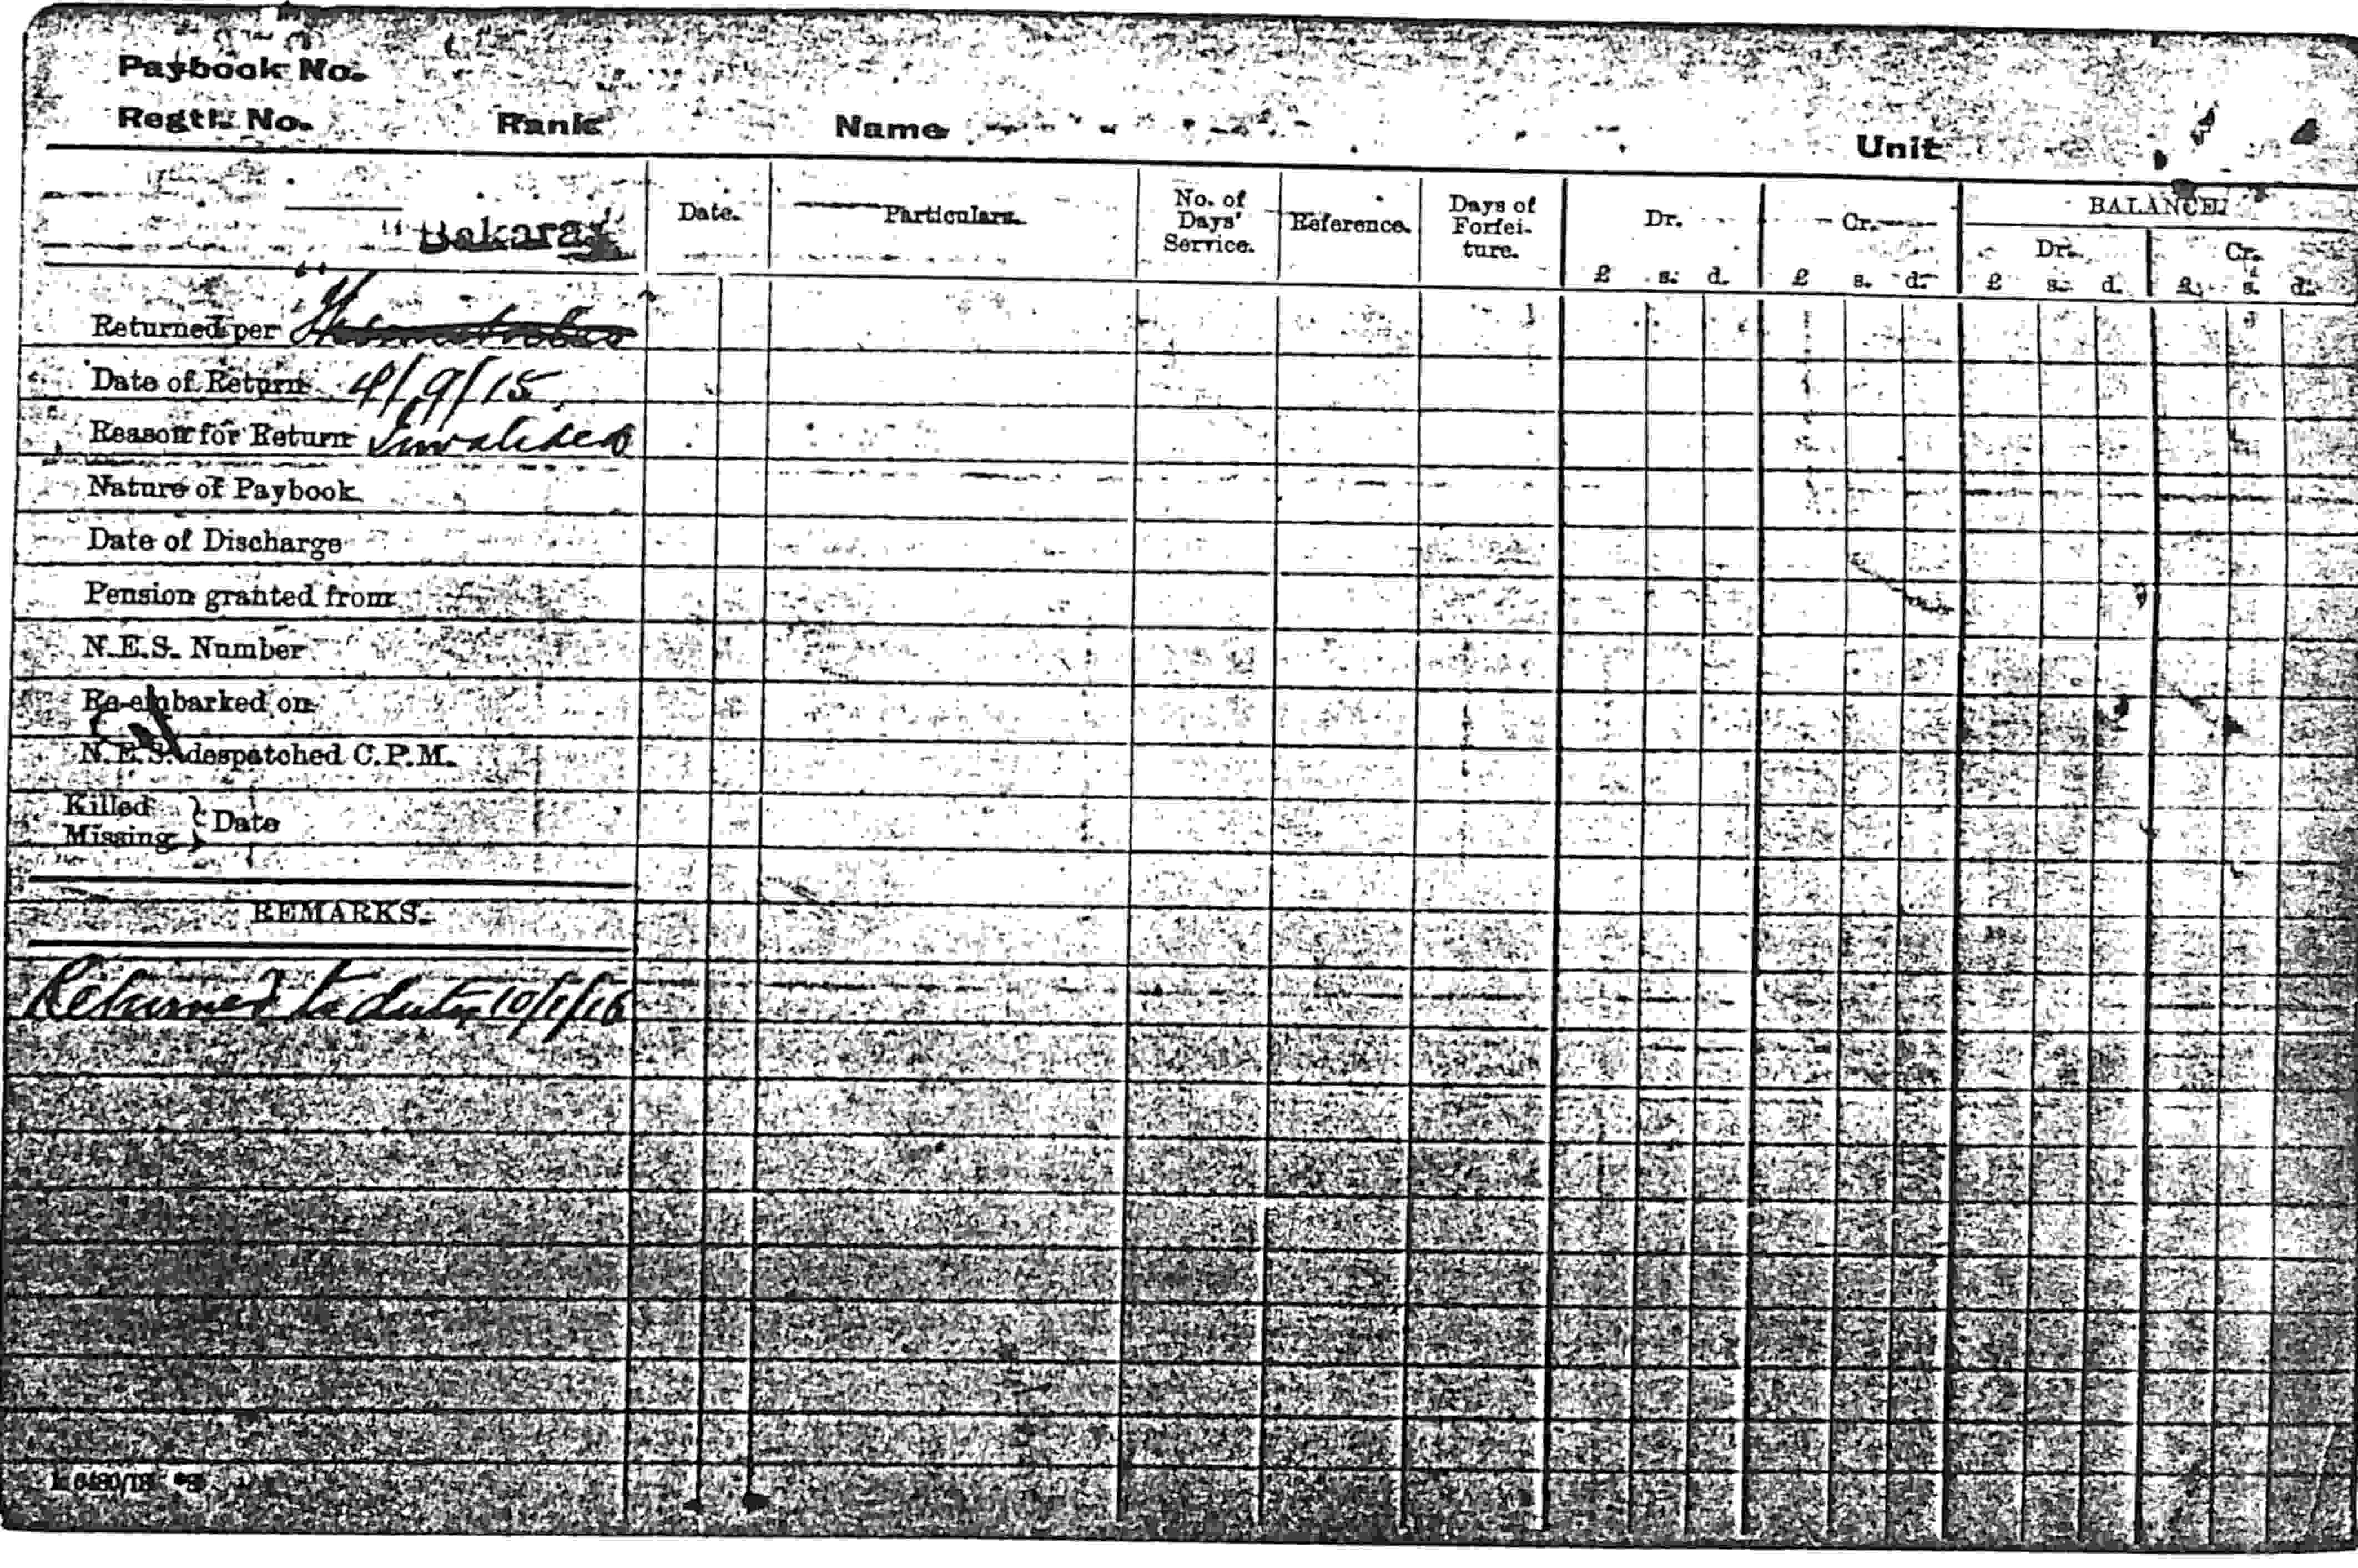 Paybook No.
Regtl. No. Rank Name Unit
"Bakara"
Date. Particulars. No. of Days' Service. Reference. Days of Forfei-ture. Dr. Cr. BALANCE.
Dr. Cr.
£ s. d. £ s. d. £ s. d. £ s. d.
Returned per
Date of Return 4/9/15
Reason for Return Invalided
Nature of Paybook
Date of Discharge
Pension granted from
N.E.S. Number
Re-embarked on
N.E.S. despatched C.P.M.
Killed
Missing } Date
REMARKS.
Returned to duty 10/1/16